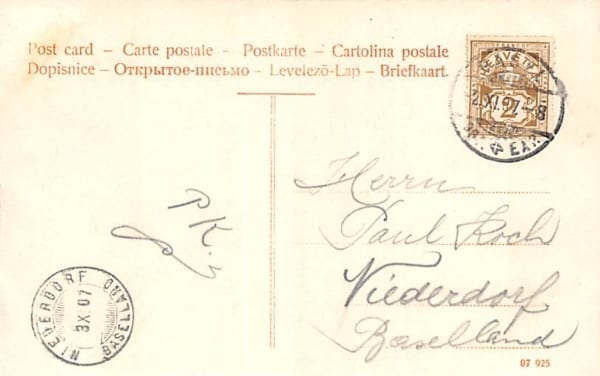 Post card – Carte postale – Postkarte – Cartolina postale
Dopisnice – Открытое-письмо – Levelezō-Lap – Briefkaart.
HELVETIA
2
XI.07.–8
EXP.
P.K.
Herrn
Paul Koch
Niederdorf
Baselland
NIEDERDORF
3 XI 07
BASELLAND
07 925